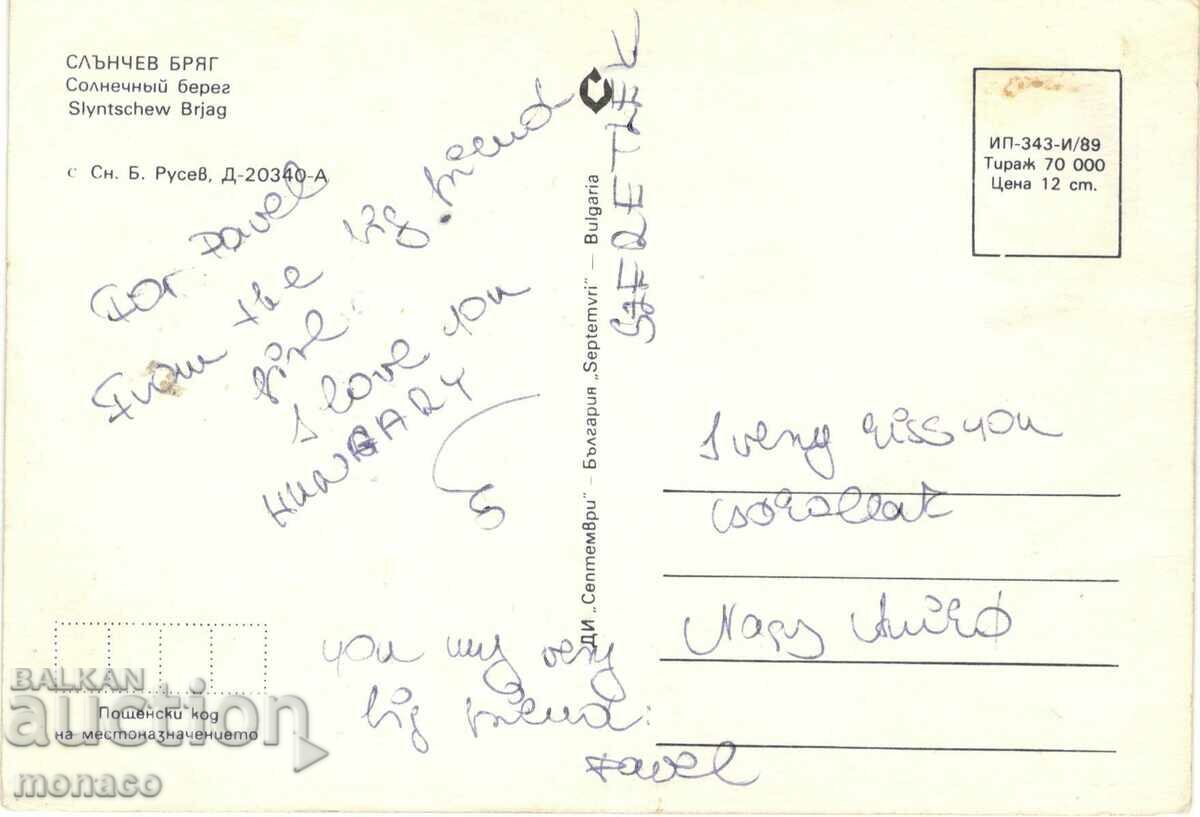 СЛЪНЧЕВ БРЯГ
Солнечный берег
Slyntschew Brjag
с Сн. Б. Русев, Д-20340-А
For Pavel
From the big friend
I love you
HUNGARY
you my very
big friend:
Pavel
ДИ „Септември" – България „Septemvri" – Bulgaria
SZERETLEK
ИП-343-И/89
Тираж 70 000
Цена 12 ст.
I very kiss you
csókollak
Nagy
Пощенски код
на местоназначението
BALKAN
auction
monaco